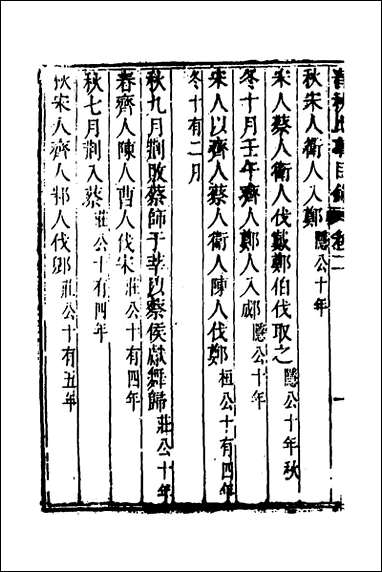 春秋比事目錄 卷二 一
秋宋人衛人入鄭隱公十年
宋人蔡人衛人伐戴鄭伯伐取之隱公十年秋
冬十月壬午齊人鄭人入郕隱公十年
宋人以齊人蔡人衛人陳人伐鄭桓公十有四年
冬十有二月
秋九月荆敗蔡師于莘以蔡侯獻舞歸莊公十年
春齊人陳人曹人伐宋莊公十有四年
秋七月荆入蔡莊公十有四年
秋宋人齊人邾人伐郳莊公十有五年